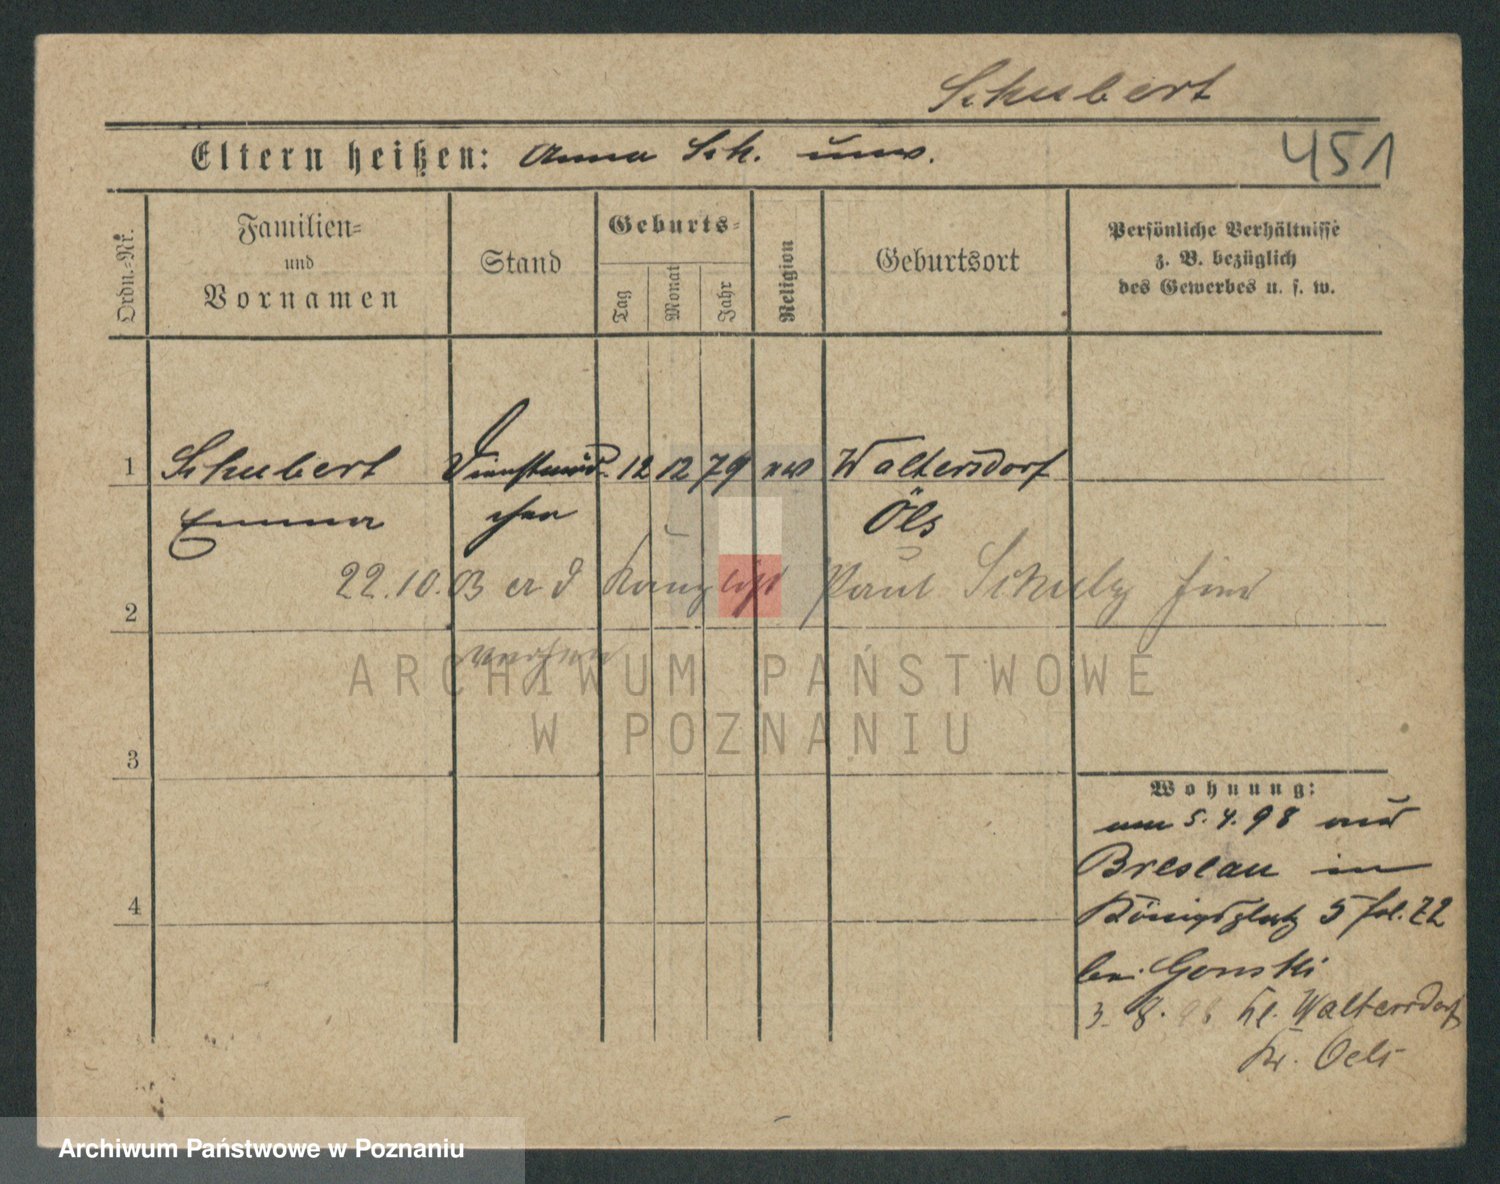 Schubert
451
Eltern heißen: Anna Sch. unv.
Ordn.-Nr.
Familien-
und
Vornamen
Stand
Geburts-
Tag
Monat
Jahr
Religion
Geburtsort
Persönliche Verhältnisse
z. B. bezüglich
des Gewerbes u. s. w.
1 Schubert Dienstmäd- 12 12 79 Waltersdorf
Emma chen Öls
22.10.03 Kanzlist Paul Schulz
2
ARCHIWUM PAŃSTWOWE
W POZNANIU
3
Wohnung:
am 5.4.98 aus
Breslau in
4
Königsplatz 5 fol. 22
bei Gonski
3. 8. 98 Kl. Waltersdorf
Kr. Oels
Archiwum Państwowe w Poznaniu